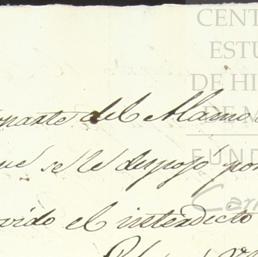 CENT
ESTU
DE HI
DE M
FUND
Car
onaste del Alamo
que se le despojó por
ovido el interdicto